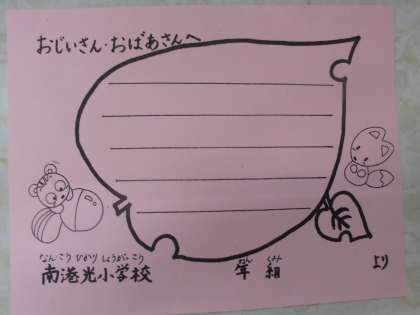 おじいさん・おばあさんへ
なんこう ひかり しょうがっこう
南港光小学校
ねん くみ
年 組 より